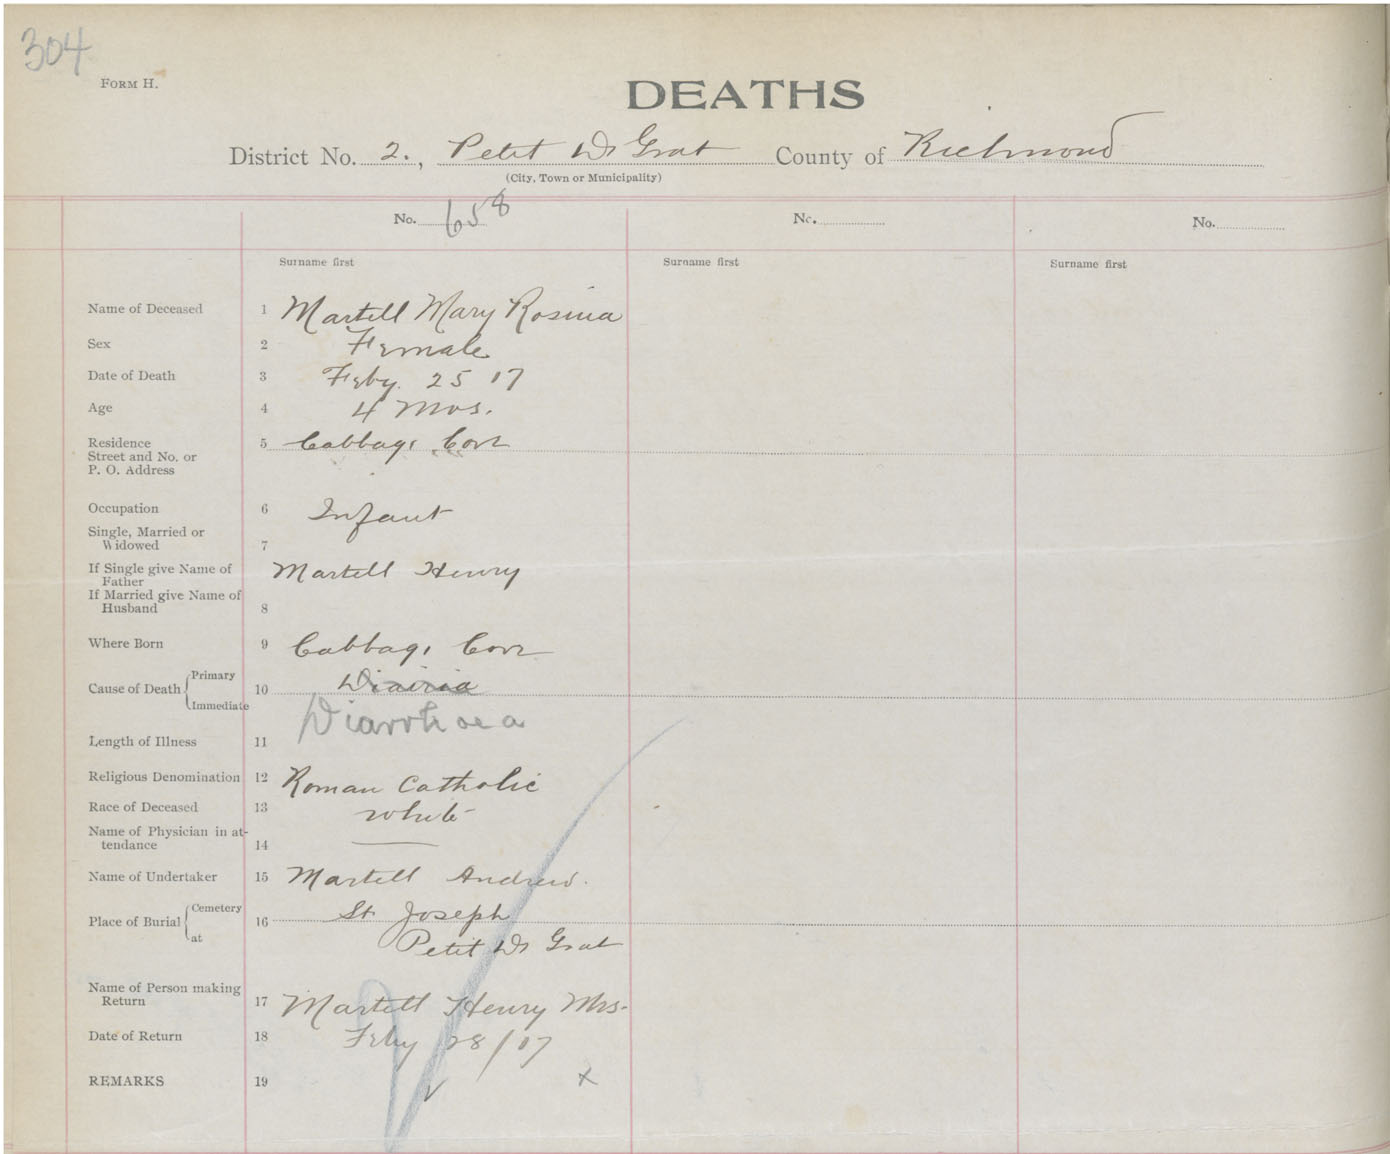 304
FORM H.
DEATHS
District No. 2., Petit De Grat County of Richmond
(City, Town or Municipality)
No. 658 No. No.
Surname first Surname first Surname first
Name of Deceased 1 Martell Mary Rosina
Sex 2 Female
Date of Death 3 Feby. 25 17
Age 4 4 Mos.
Residence 5 Cabbage Cove
Street and No. or
P. O. Address
Occupation 6 Infant
Single, Married or
Widowed 7
If Single give Name of Martell Henry
Father
If Married give Name of
Husband 8
Where Born 9 Cabbage Cove
Primary
Cause of Death 10 Diairia
Immediate Diarrhoea
Length of Illness 11
Religious Denomination 12 Roman Catholic
Race of Deceased 13 White
Name of Physician in at-
tendance 14 —
Name of Undertaker 15 Martell Andrew.
Cemetery St. Joseph
Place of Burial 16
at Petit De Grat
Name of Person making
Return 17 Martell Henry Mrs.
Date of Return 18 Feby 28/17
REMARKS 19 x